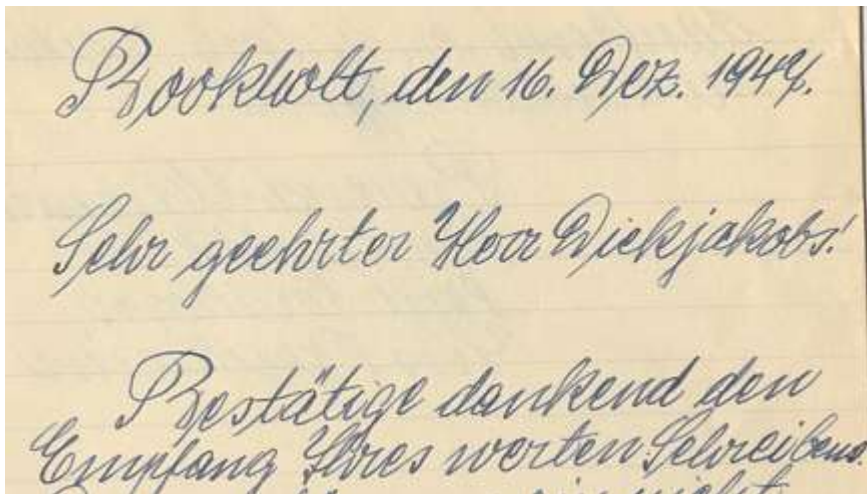 Bookholt, den 16. Dez. 1947.
Sehr geehrter Herr Diekjakobs!
Bestätige dankend den
Empfang Ihres werten Schreibens.
nicht